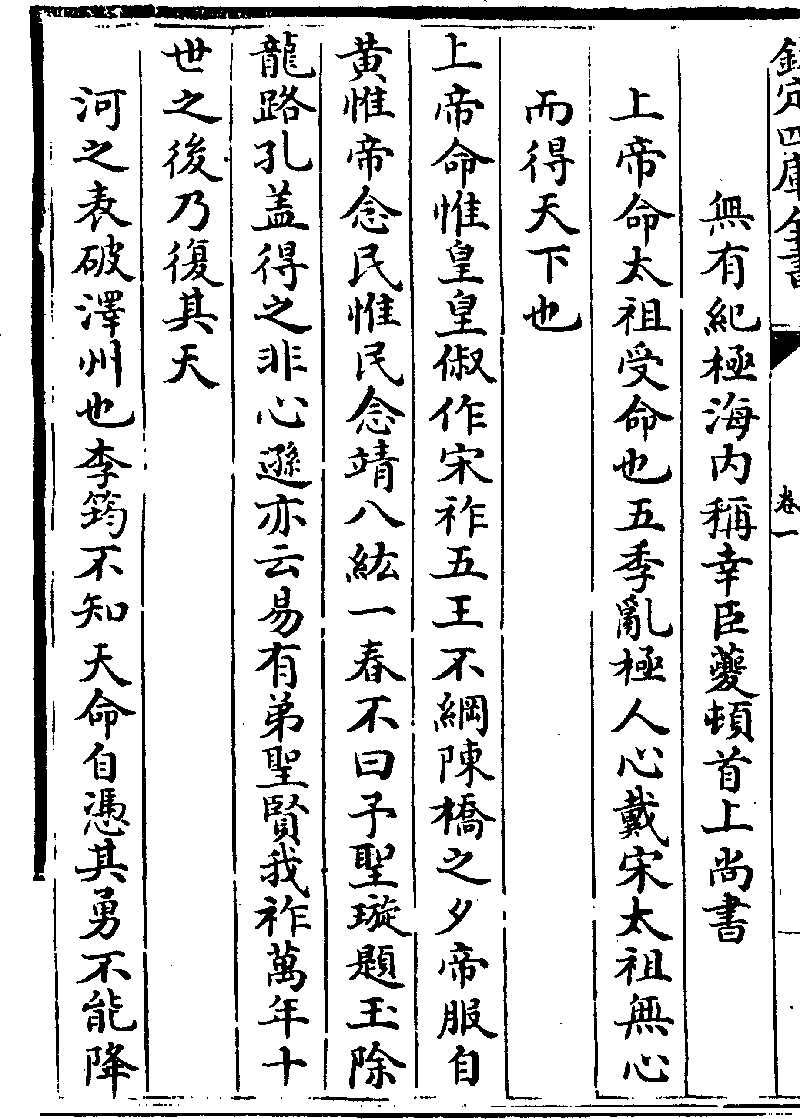 欽定四庫全書
卷一
無有紀極海內稱幸臣夔頓首上尚書
上帝命太祖受命也五季亂極人心戴宋太祖無心
而得天下也
上帝命惟皇皇俶作宋祚五王不綱陳橋之夕帝服自
黄惟帝念民惟民念靖八紘一春不曰予聖璇題玉除
龍路孔盖得之非心遜亦云易有弟聖賢我祚萬年十
世之後乃復其天
河之表破澤州也李筠不知天命自憑其勇不能降